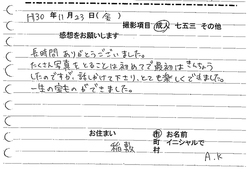 H30年11月23日(金)
撮影項目 成人 七五三 その他
感想をお願いします
長時間 ありがとうございました。
たくさん写真をとることは初めてで最初はきんちょう
したのですが、話しかけて下さり、とても楽しくできました。
一生の宝ものができました。
お住まい 市 お名前
稲敷 町 イニシャルで
村 A.K